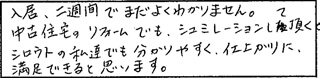 入居、二週間でまだよくわかりません。 て
中古住宅のリフォームでも、シュミレーションし頂くと
シロウトの私達でも分かりやすく、仕上がりに、
満足できると思います。